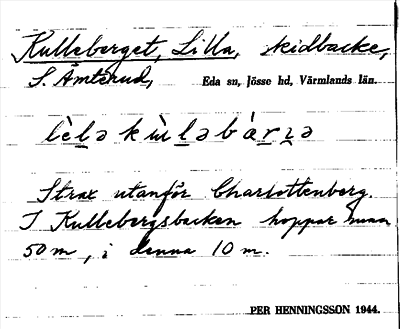 Kulleberget, Lilla, skidbacke,
S. Ämterud, Eda sn, Jösse hd, Värmlands län.
lèlə kùləbárzə
Strax utanför Charlottenberg.
I Kullebergsbacken hoppar man
50 m, i denna 10 m.
PER HENNINGSSON 1944.